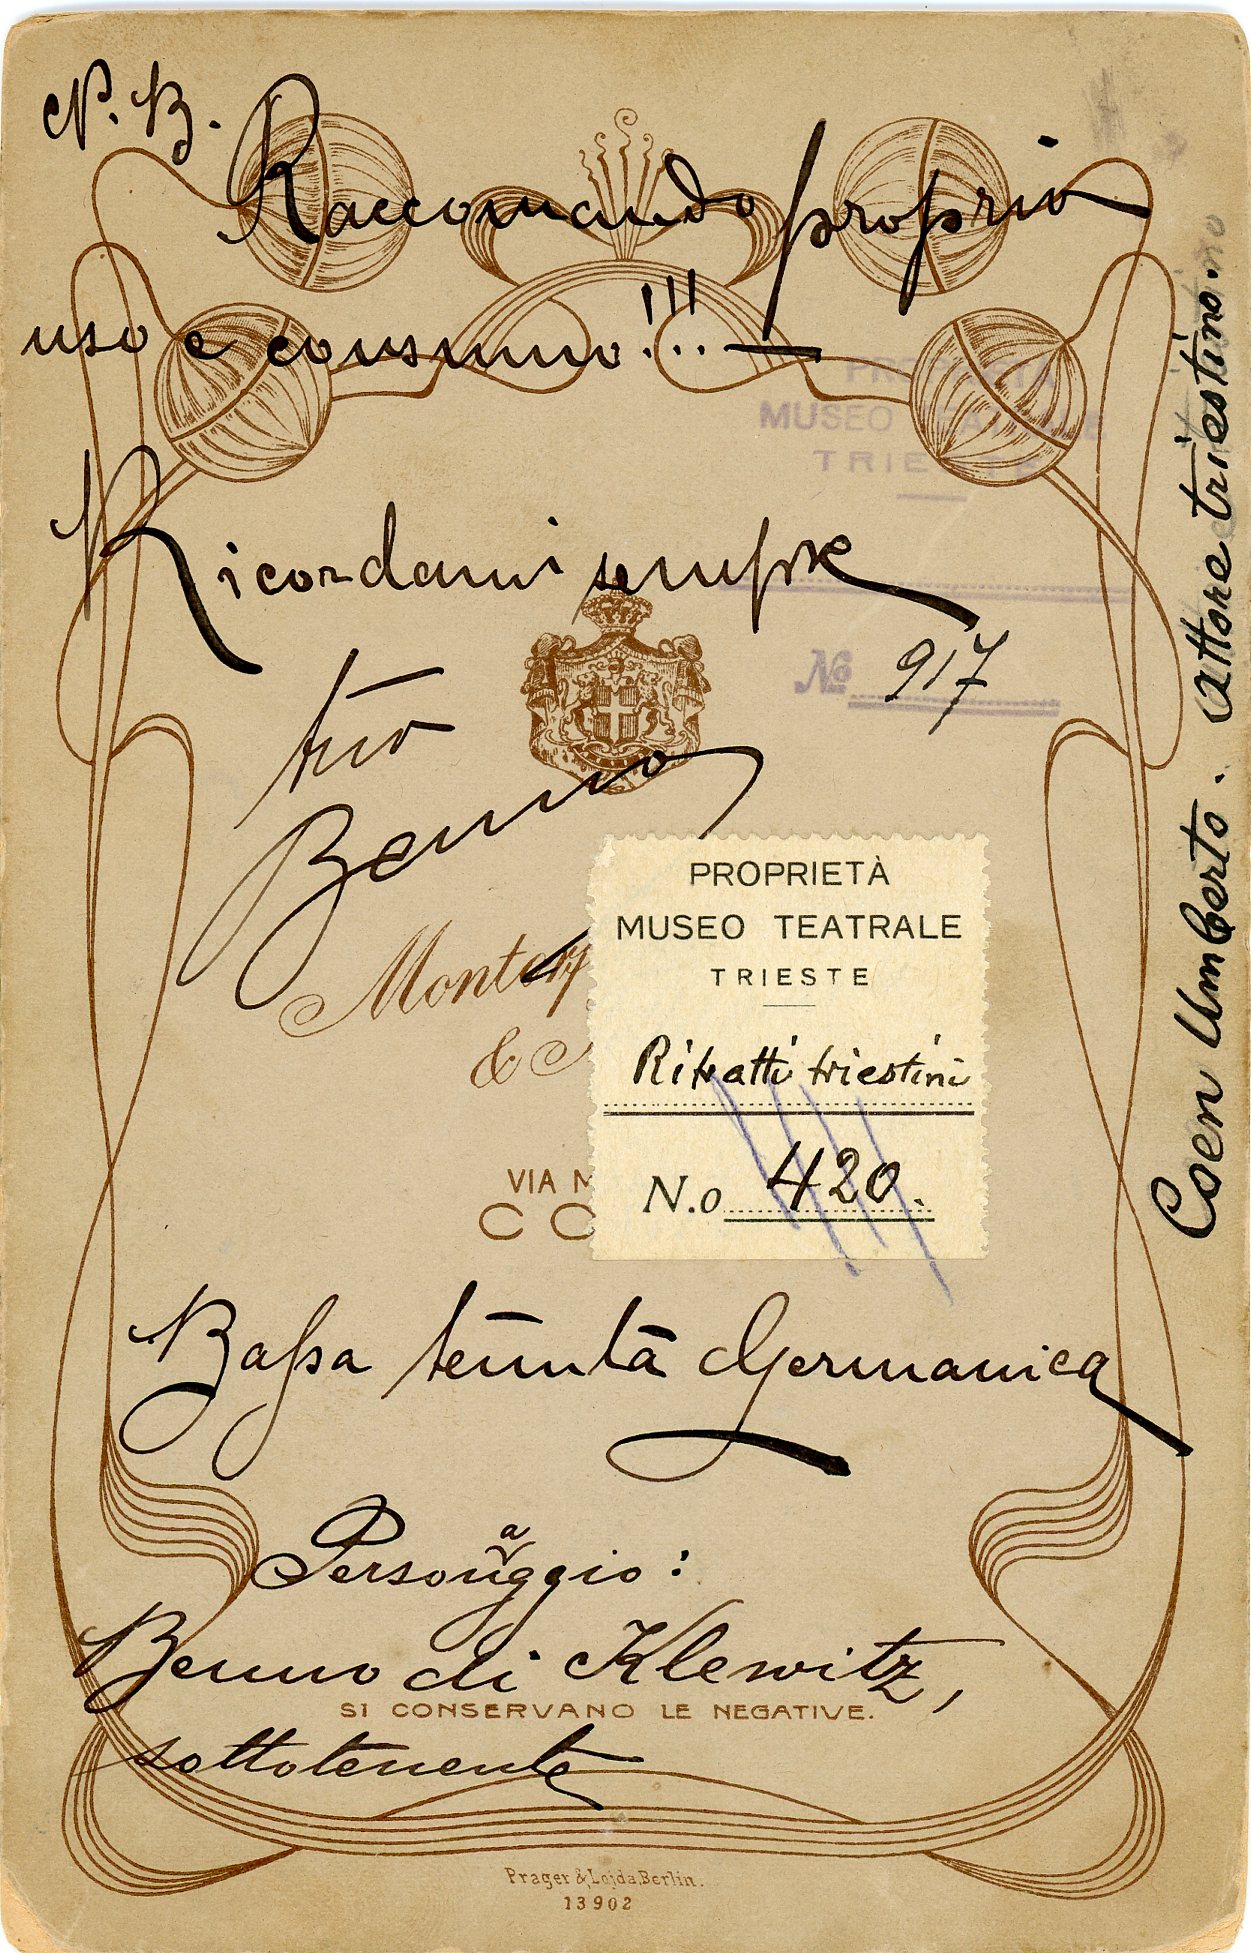 N. B. Raccomando proprio
uso e consumo!!! —
PROPRIETÀ
MUSEO TEATRALE
TRIESTE
Ricordami sempre
No 917
tuo
Benno
PROPRIETÀ
MUSEO TEATRALE
TRIESTE
Ritratti triestini
N.o 420.
&
VIA
Bassa tenuta Germanica
Personaggio:
Benno di Klewitz,
SI CONSERVANO LE NEGATIVE.
sottotenente
Prager & Lojda, Berlin.
13902
Coen Umberto. attore triestino.